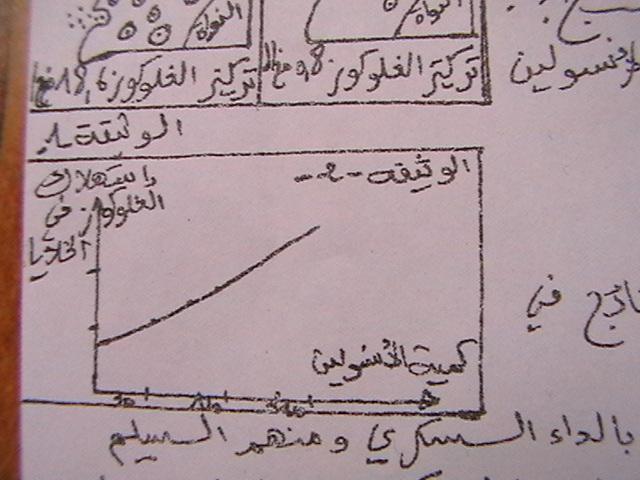 النواة النواة
تركيز الغلوكوز 0,8 تركيز الغلوكوز 18,6
الأنسولين
الوثيقة 1
الوثيقة -2-
استهلاك
الغلوكوز في
الخلايا
كمية الأنسولين
في
بالداء السكري و منهم السليم